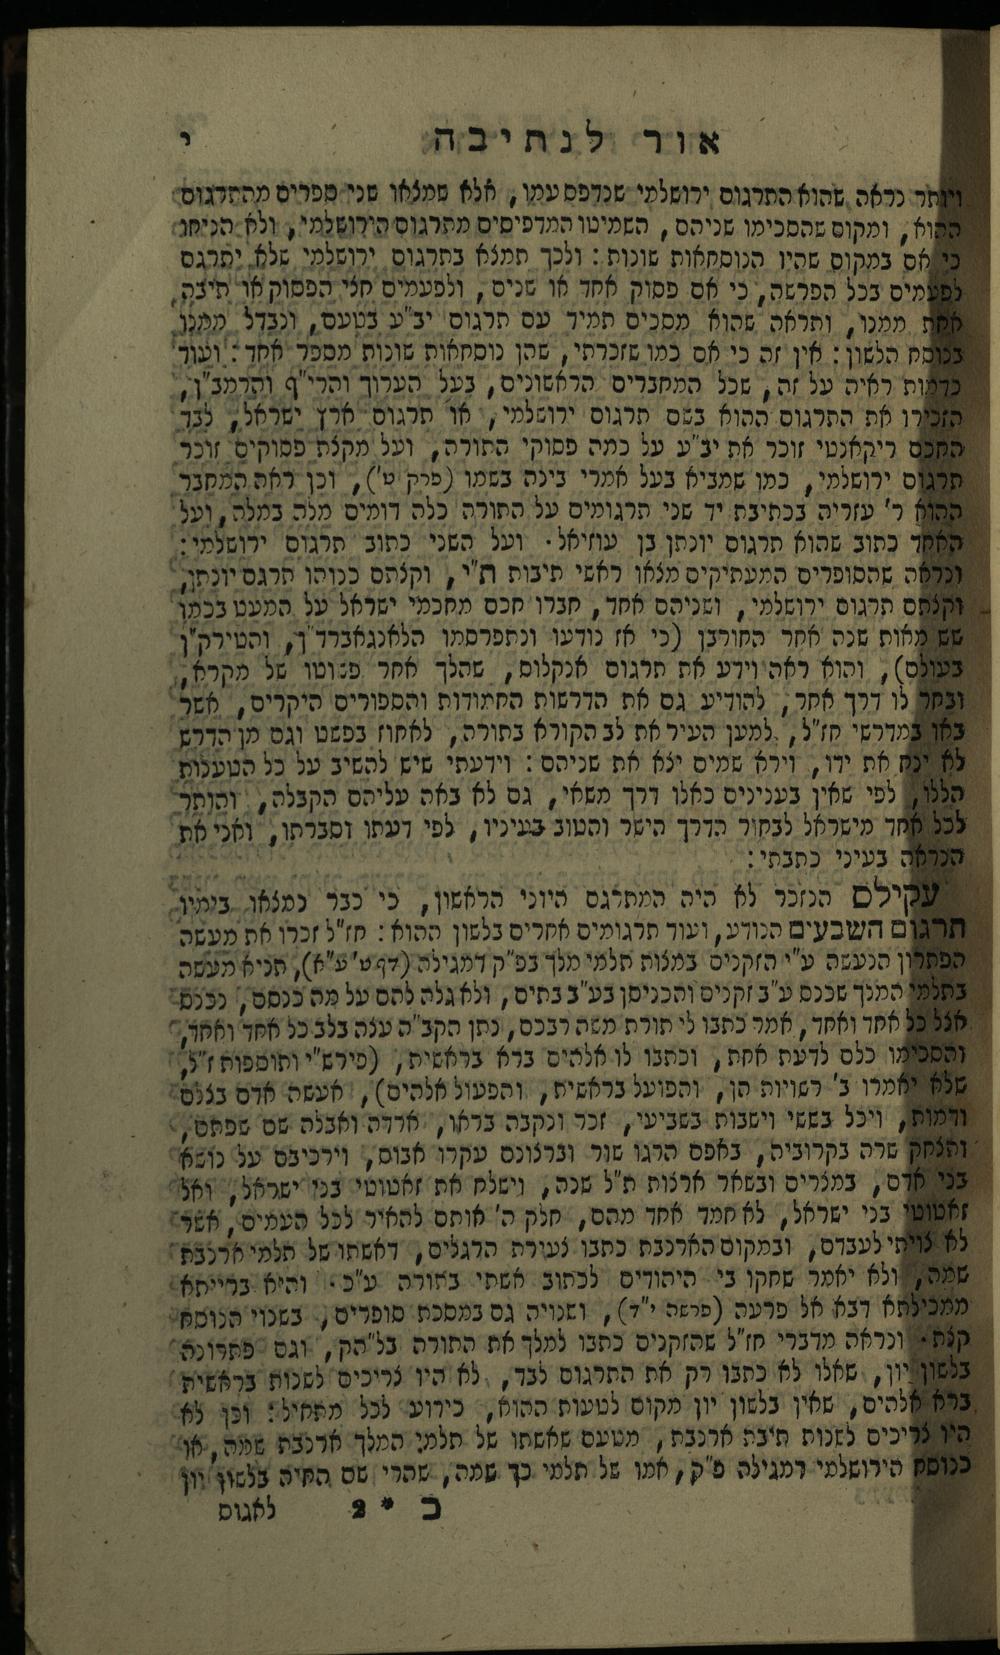 אור לנתיבה י
ויותר נראה שהוא התרגום ירושלמי שנדפס עמו, אלא שמצאו שני ספרים מהתרגום
ההוא, ומקום שהסכימו שניהם, השמיטו המדפיסים מתרגום הירושלמי, ולא הניחו
כי אם במקום שהיו הנוסחאות שונות: ולכך תמצא בתרגום ירושלמי שלא יתרגם
לפעמים בכל הפרשה, כי אם פסוק אחד או שנים, ולפעמים חצי הפסוק או תיבה
אחת ממנו, ותראה שהוא מסכים תמיד עם תרגום יב"ע בטעם, ונבדל ממנו
בנוסח הלשון: אין זה כי אם כמו שזכרתי, שהן נוסחאות שונות מספר אחד: ועוד
כדמות ראיה על זה, שכל המחברים הראשונים, בעל הערוך והרי"ף והרמב"ן,
הזכירו את התרגום ההוא בשם תרגום ירושלמי, או תרגום ארץ ישראל, לבד
החכם ריקאנטי זוכר את יב"ע על כמה פסוקי התורה, ועל מקצת פסוקים זוכר
תרגום ירושלמי, כמו שמביא בעל אמרי בינה בשמו (פרק ט'), וכן ראה המחבר
ההוא ר' עזריה בכתיבת יד שני תרגומים על התורה כלה דומים מלה במלה, ועל
האחד כתוב שהוא תרגום יונתן בן עוזיאל. ועל השני כתוב תרגום ירושלמי:
ונראה שהסופרים המעתיקים מצאו ראשי תיבות ת"י, וקצתם כנוהו תרגם יונתן,
וקצתם תרגום ירושלמי, ושניהם אחד, חברו חכם מחכמי ישראל על המעט בכמו
שש מאות שנה אחר החורבן (כי אז נודעו ונתפרסמו הלאנגאברד"ן, והטירק"ן
בעולם), והוא ראה וידע את תרגום אנקלוס, שהלך אחר פשוטו של מקרא,
ובחר לו דרך אחר, להודיע גם את הדרשות החמודות והספורים היקרים, אשר
באו במדרשי חז"ל, למען העיר את לב הקורא בתורה, לאחוז בפשט וגם מן הדרש
לא ינח את ידו, וירא שמים יצא את שניהם: וידעתי שיש להשיב על כל הטענות
הללו, לפי שאין בענינים כאלו דרך משאי, גם לא באה עליהם הקבלה, והותר
לכל אחד מישראל לבחור הדרך הישר והטוב בעיניו, לפי דעתו וסברתו, ואני את
הנראה בעיני כתבתי:
עקילם הנזכר לא היה המתרגם היוני הראשון, כי כבר נמצאו בימיו
תרגום השבעים הנודע, ועוד תרגומים אחרים בלשון ההוא: חז"ל זכרו את מעשה
הפתרון הנעשה ע"י הזקנים במצות תלמי מלך בפ"ק דמגילה (דף ט' ע"א), תניא מעשה
בתלמי המלך שכנס ע"ב זקנים והכניסן בע"ב בתים, ולא גלה להם על מה כנסם, נכנס
אצל כל אחד ואחד, אמר כתבו לי תורת משה רבכם, נתן הקב"ה עצה בלב כל אחד ואחד,
והסכימו כלם לדעת אחת, וכתבו לו אלהים ברא בראשית, (פירש"י ותוספות ז"ל,
שלא יאמרו ב' רשויות הן, והפועל בראשית, והפעול אלהים), אעשה אדם בצלם
ודמות, ויכל בששי וישבות בשביעי, זכר ונקבה בראו, ארדה ואבלה שם שפתם,
ותצחק שרה בקרוביה, באפם הרגו שור וברצונם עקרו אבוס, וירכיבם על נושא
בני אדם, במצרים ובשאר ארצות ת"ל שנה, וישלח את זאטוטי בני ישראל, ואל
זאטוטי בני ישראל, לא חמד אחד מהם, חלק ה' אותם להאיר לכל העמים, אשר
לא צויתי לעבדם, ובמקום הארנבת כתבו צעירת הרגלים, דאשתו של תלמי ארנבת
שמה, ולא יאמר שחקו בי היהודים לכתוב אשתי בתורה ע"כ. והיא ברייתא
ממכילתא דבא אל פרעה (פרשה י"ד), ושנויה גם במסכת סופרים, בשנוי הנוסח
קצת. ונראה מדברי חז"ל שהזקנים כתבו למלך את התורה בל"הק, וגם פתרונה
בלשון יון, שאלו לא כתבו רק את התרגום לבד, לא היו צריכים לשנות בראשית
ברא אלהים, שאין בלשון יון מקום לטעות ההוא, כידוע לכל מתחיל: וכן לא
היו צריכים לשנות תיבת ארנבת, מטעם שאשתו של תלמי המלך ארנבת שמה, או
כנוסח הירושלמי דמגילה פ"ק, אמו של תלמי כך שמה, שהרי שם החיה בלשון יון
כ * 2 לאגוס